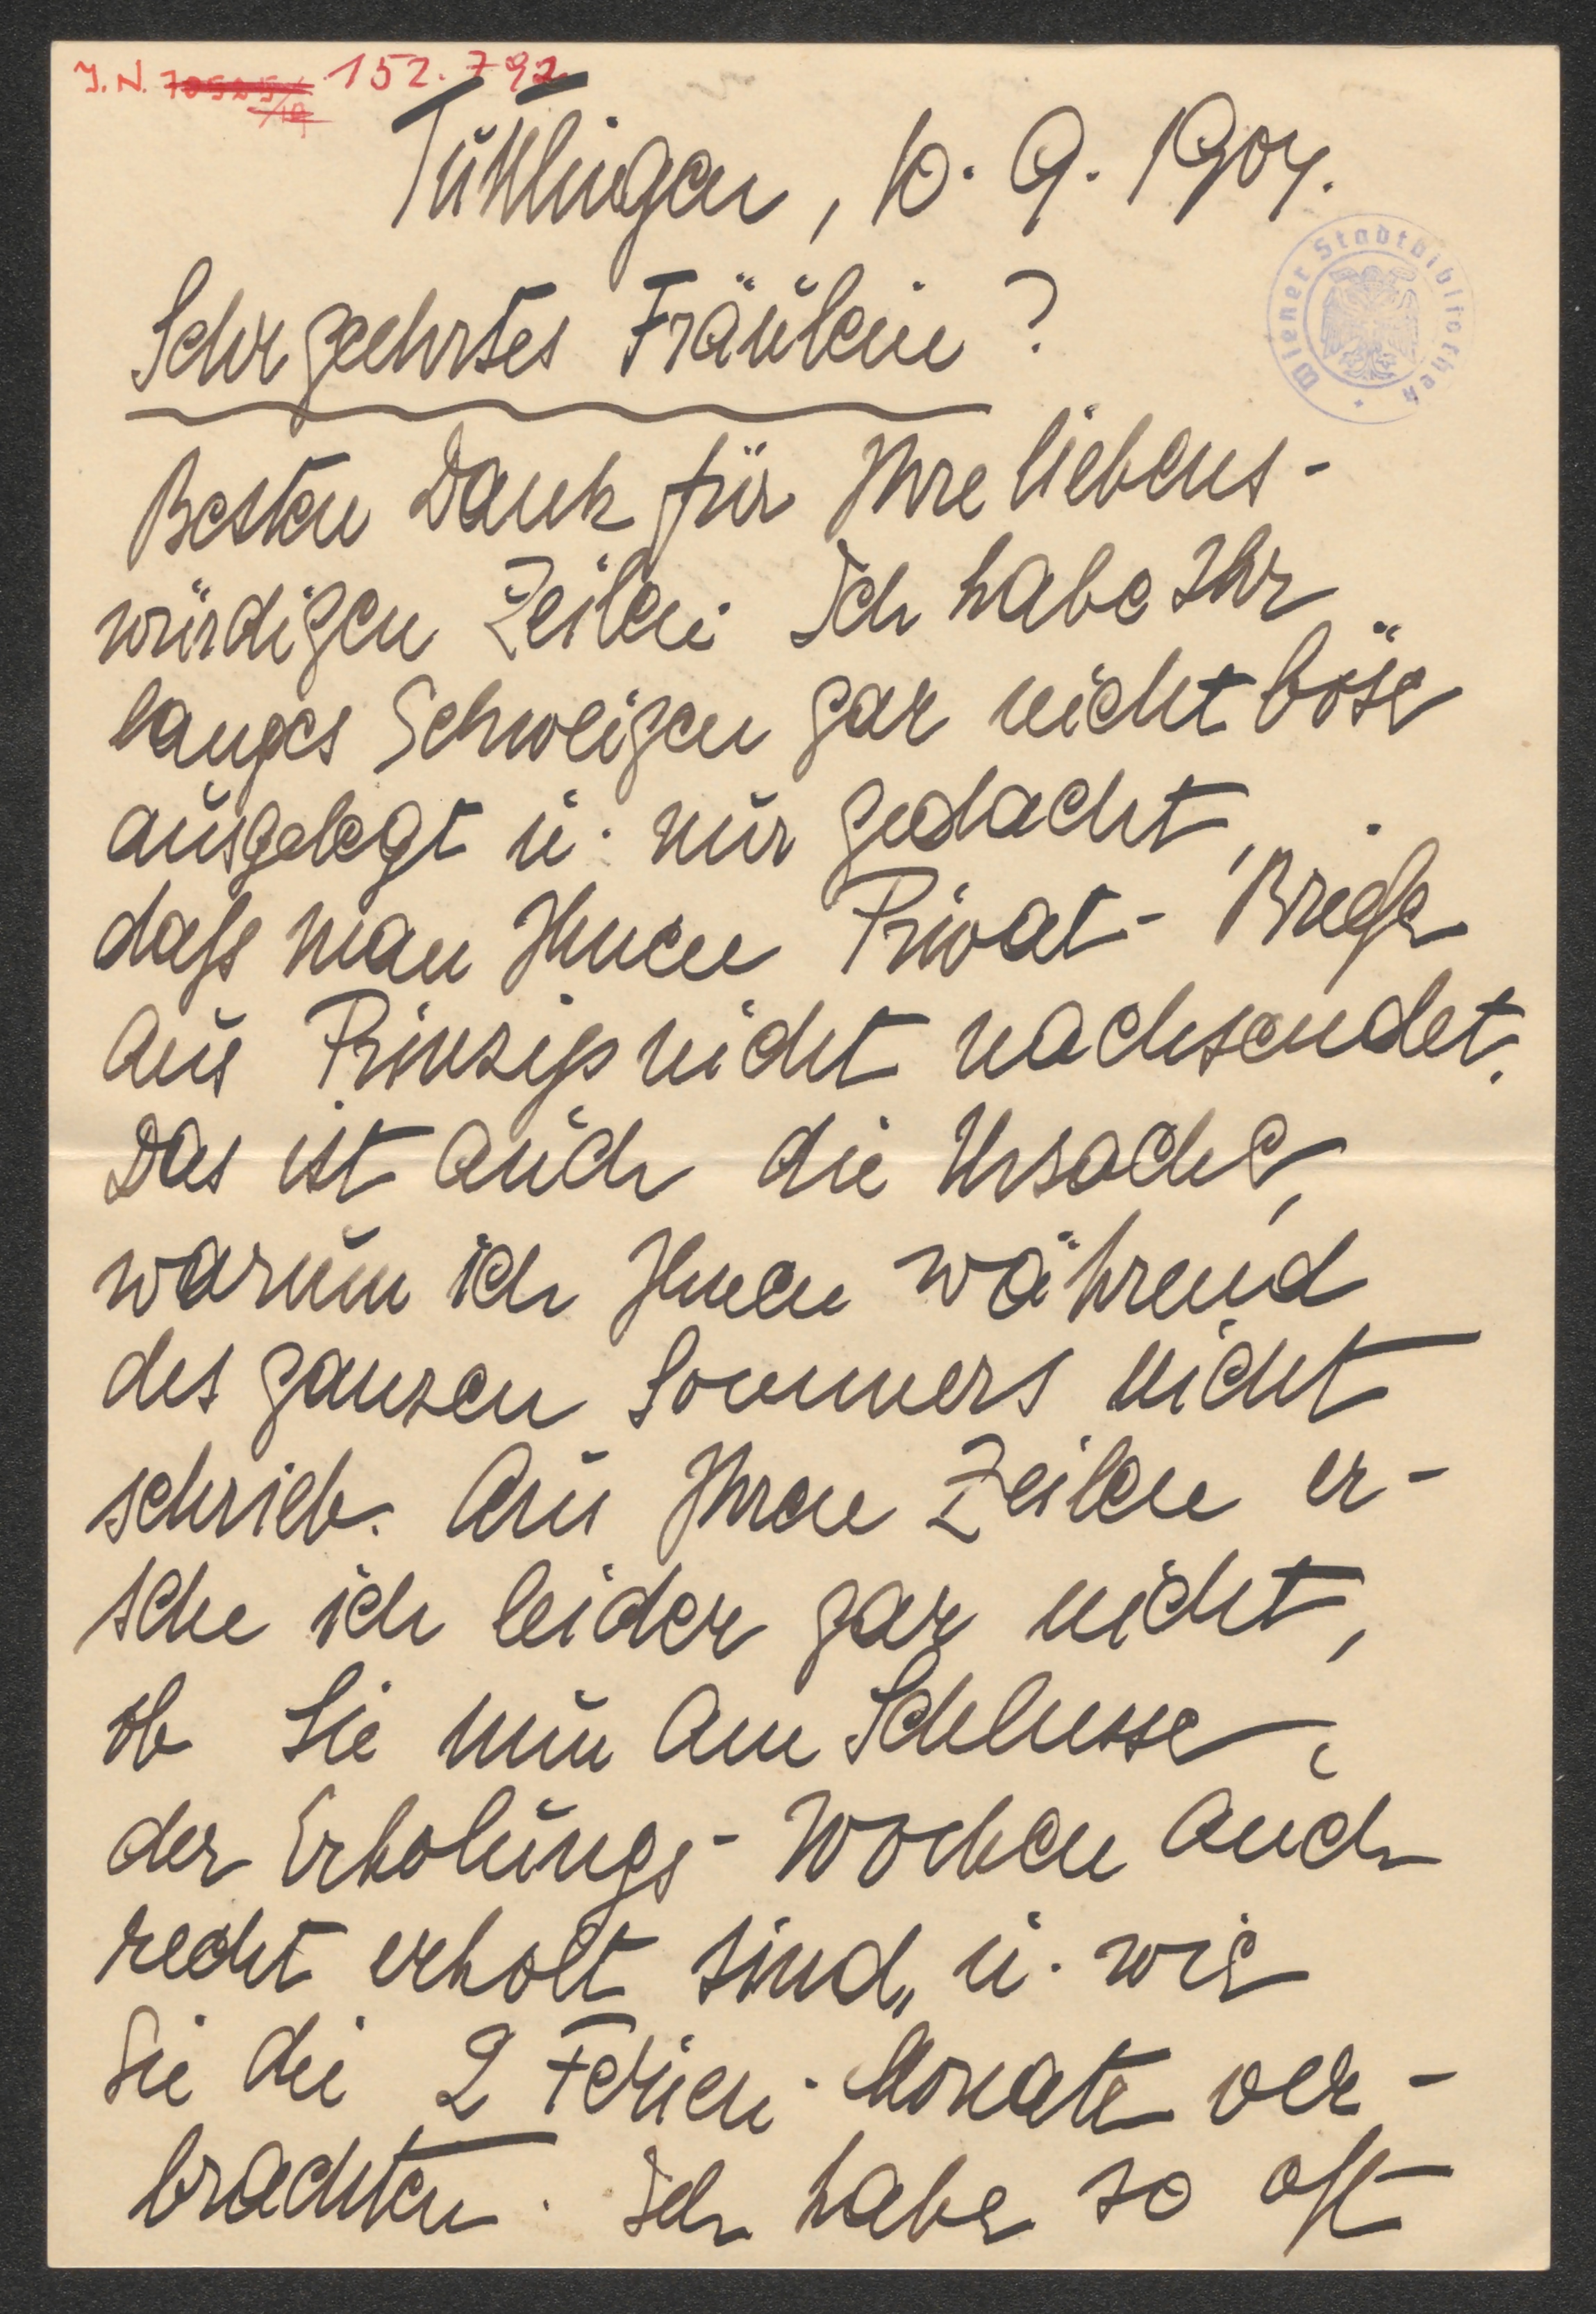 J.N. 152.792
Tuttlingen, 10. 9. 1904.
Wiener Stadtbibliothek
Sehr geehrtes Fräulein?
Besten Dank für Ihre liebens-
würdigen Zeilen. Ich habe Ihr
langes Schweigen gar nicht böse
ausgelegt u. nur gedacht,
daß man Ihnen Privat-Briefe
aus Prinzip nicht nachsendet.
Das ist auch die Ursache,
warum ich Ihnen während
des ganzen Sommers nicht
schrieb. Aus Ihren Zeilen er-
sehe ich leider gar nicht,
ob Sie nun am Schlusse
der Erholungs-Wochen auch
recht erholt sind, u. wie
Sie die 2 Ferien-Monate ver-
brachten. Ich habe so oft